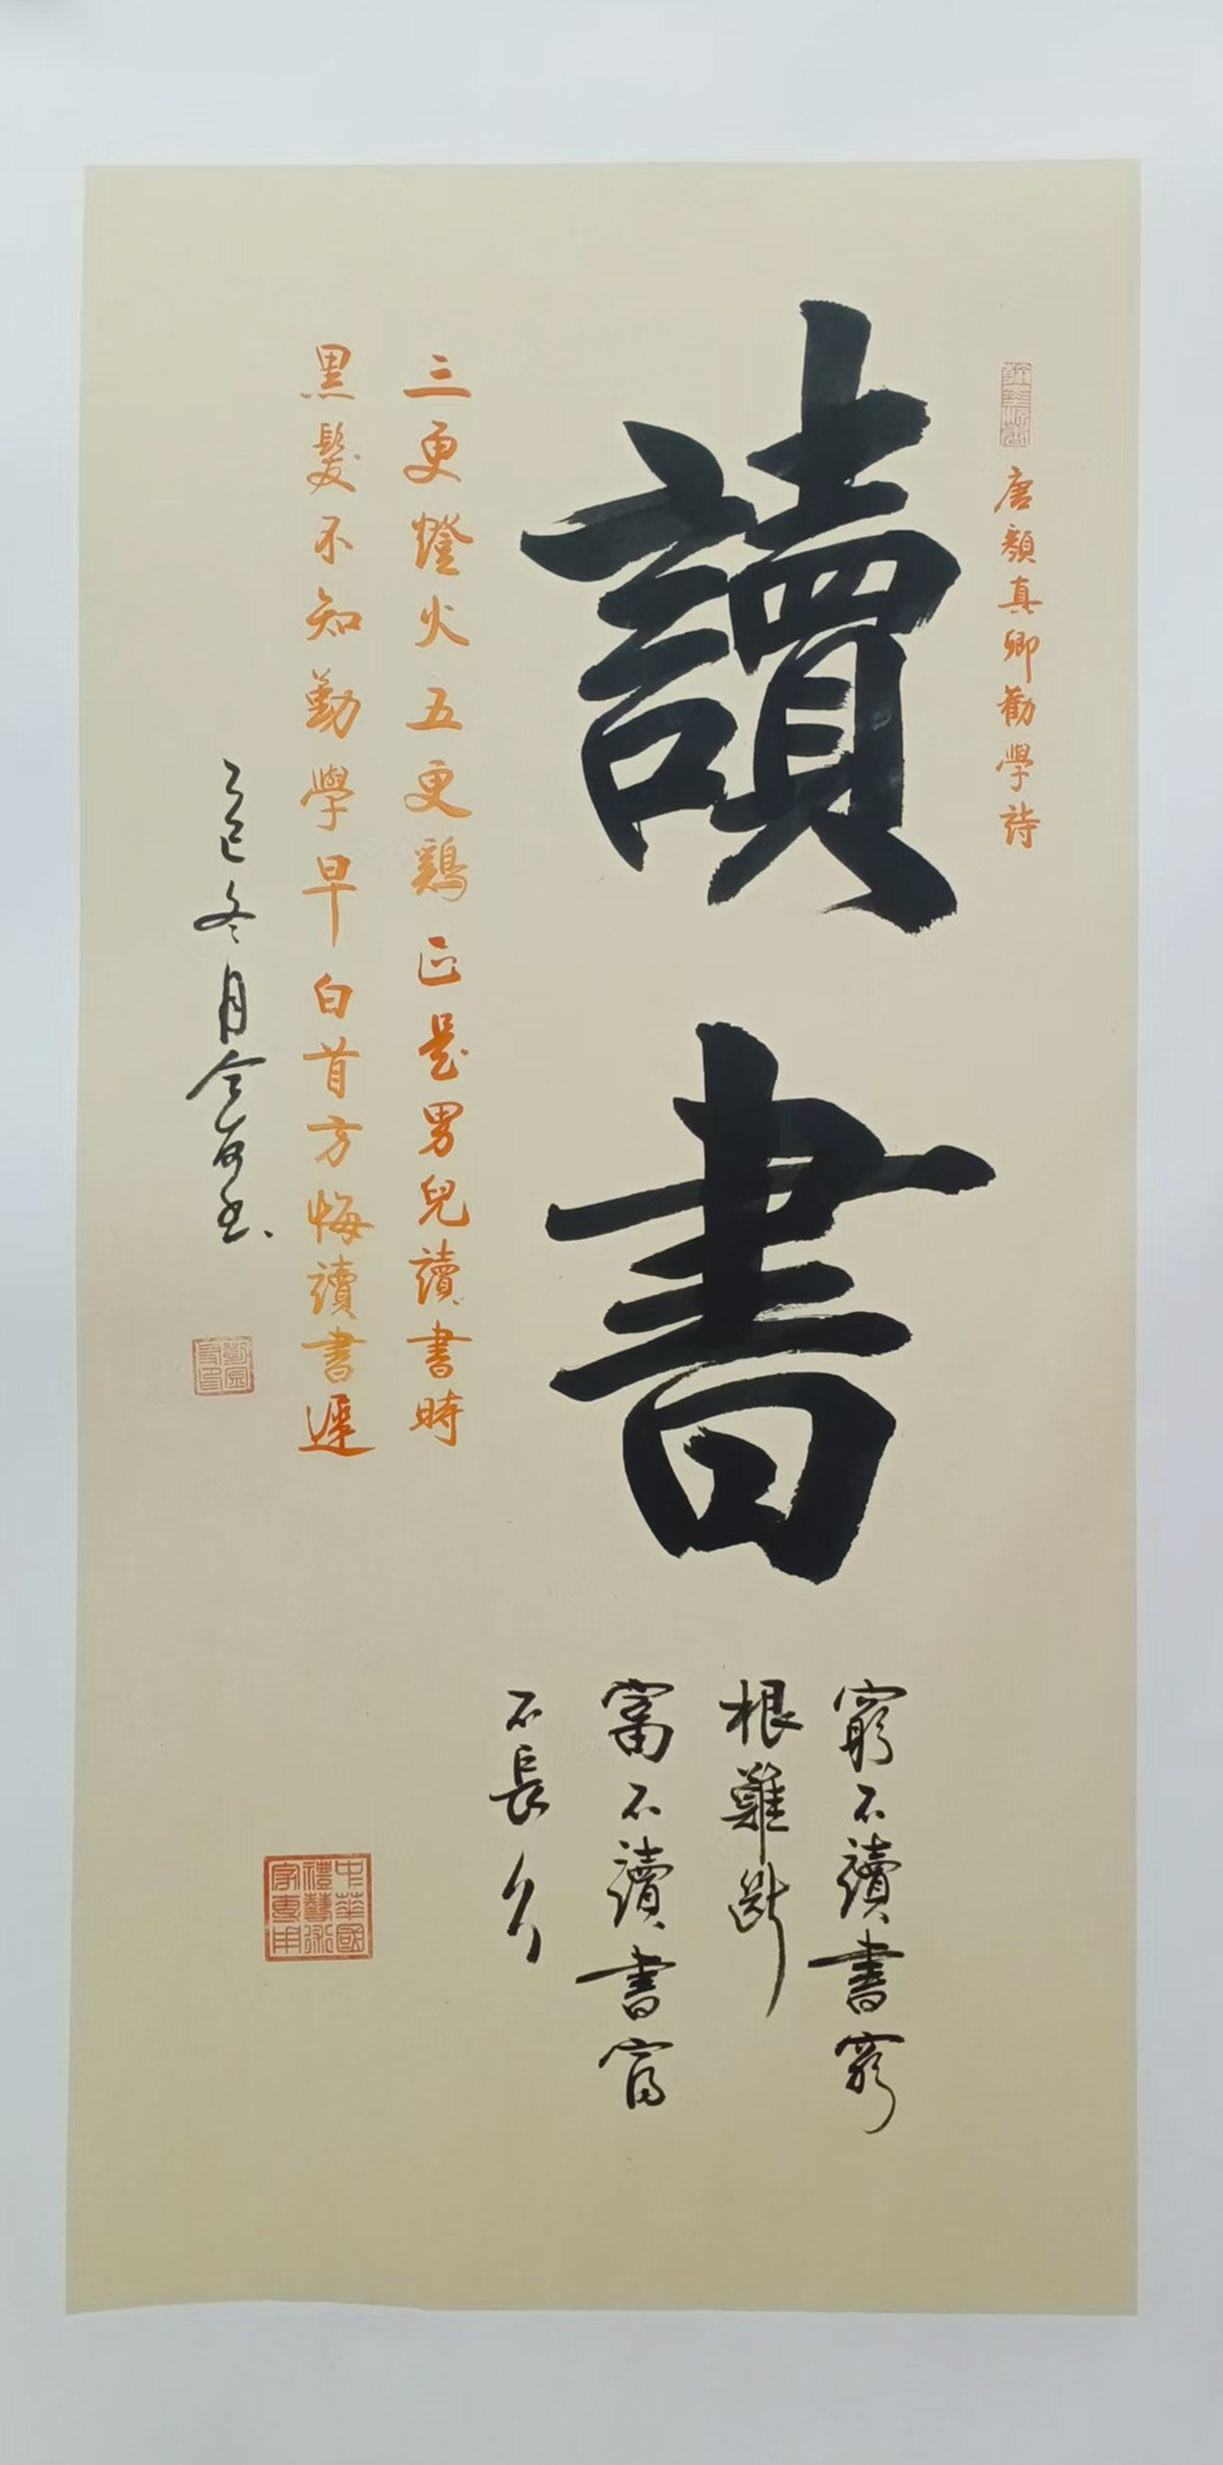 唐顏真卿勸學詩
讀書
窮不讀書窮
根難斷
富不讀書富
不長久
三更燈火五更鷄正是男兒讀書時
黑髮不知勤學早白首方悔讀書遲
乙巳冬月
中華國禮藝術家專用